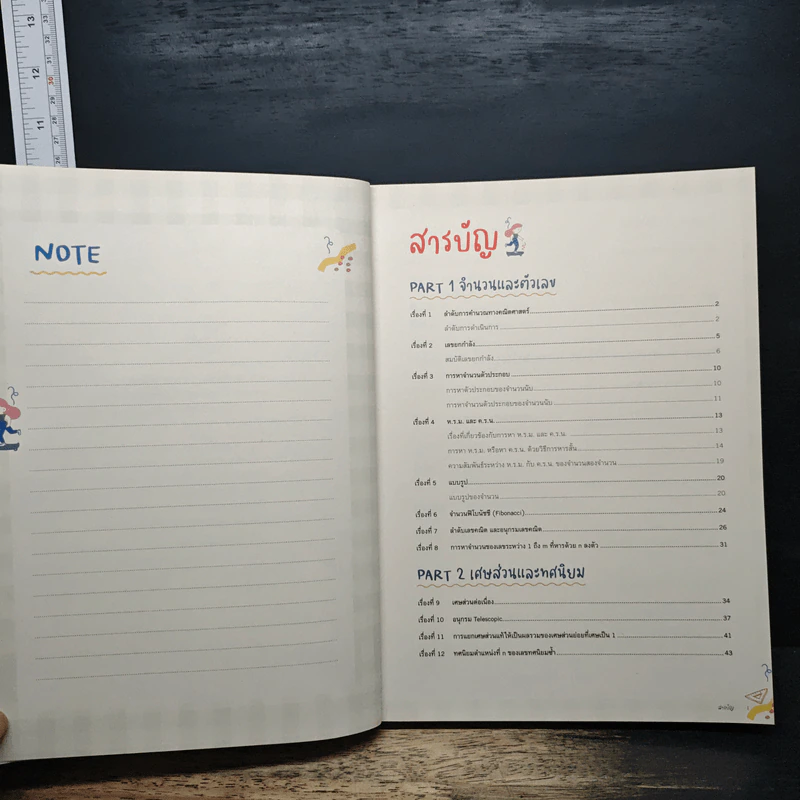 13
12
11
33
32
31
30
29
28
27
26
NOTE
สารบัญ
PART 1 จำนวนและตัวเลข
เรื่องที่ 1 ลำดับการคำนวณทางคณิตศาสตร์ 2
ลำดับการดำเนินการ 2
เรื่องที่ 2 เลขยกกำลัง 5
สมบัติเลขยกกำลัง 6
เรื่องที่ 3 การหาจำนวนตัวประกอบ 10
การหาตัวประกอบของจำนวนนับ 10
การหาจำนวนตัวประกอบของจำนวนนับ 11
เรื่องที่ 4 ห.ร.ม. และ ค.ร.น. 13
เรื่องที่เกี่ยวข้องกับการหา ห.ร.ม. และ ค.ร.น. 13
การหา ห.ร.ม. หรือหา ค.ร.น. ด้วยวิธีการหารสั้น 14
ความสัมพันธ์ระหว่าง ห.ร.ม. กับ ค.ร.น. ของจำนวนสองจำนวน 19
เรื่องที่ 5 แบบรูป 20
แบบรูปของจำนวน 20
เรื่องที่ 6 จำนวนฟีโบนัชชี (Fibonacci) 24
เรื่องที่ 7 ลำดับเลขคณิต และอนุกรมเลขคณิต 26
เรื่องที่ 8 การหาจำนวนของเลขระหว่าง 1 ถึง m ที่หารด้วย n ลงตัว 31
PART 2 เศษส่วนและทศนิยม
เรื่องที่ 9 เศษส่วนต่อเนื่อง 34
เรื่องที่ 10 อนุกรม Telescopic 37
เรื่องที่ 11 การแยกเศษส่วนแท้ให้เป็นผลรวมของเศษส่วนย่อยที่เศษเป็น 1 41
เรื่องที่ 12 ทศนิยมตำแหน่งที่ n ของเลขทศนิยมซ้ำ 43
สารบัญ